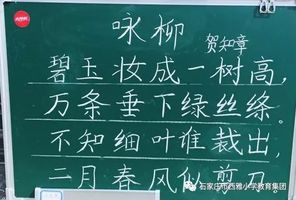 咏柳
贺知章
碧玉妆成一树高,
万条垂下绿丝绦。
不知细叶谁裁出,
二月春风似剪刀。
石家庄市西雅小学教育集团